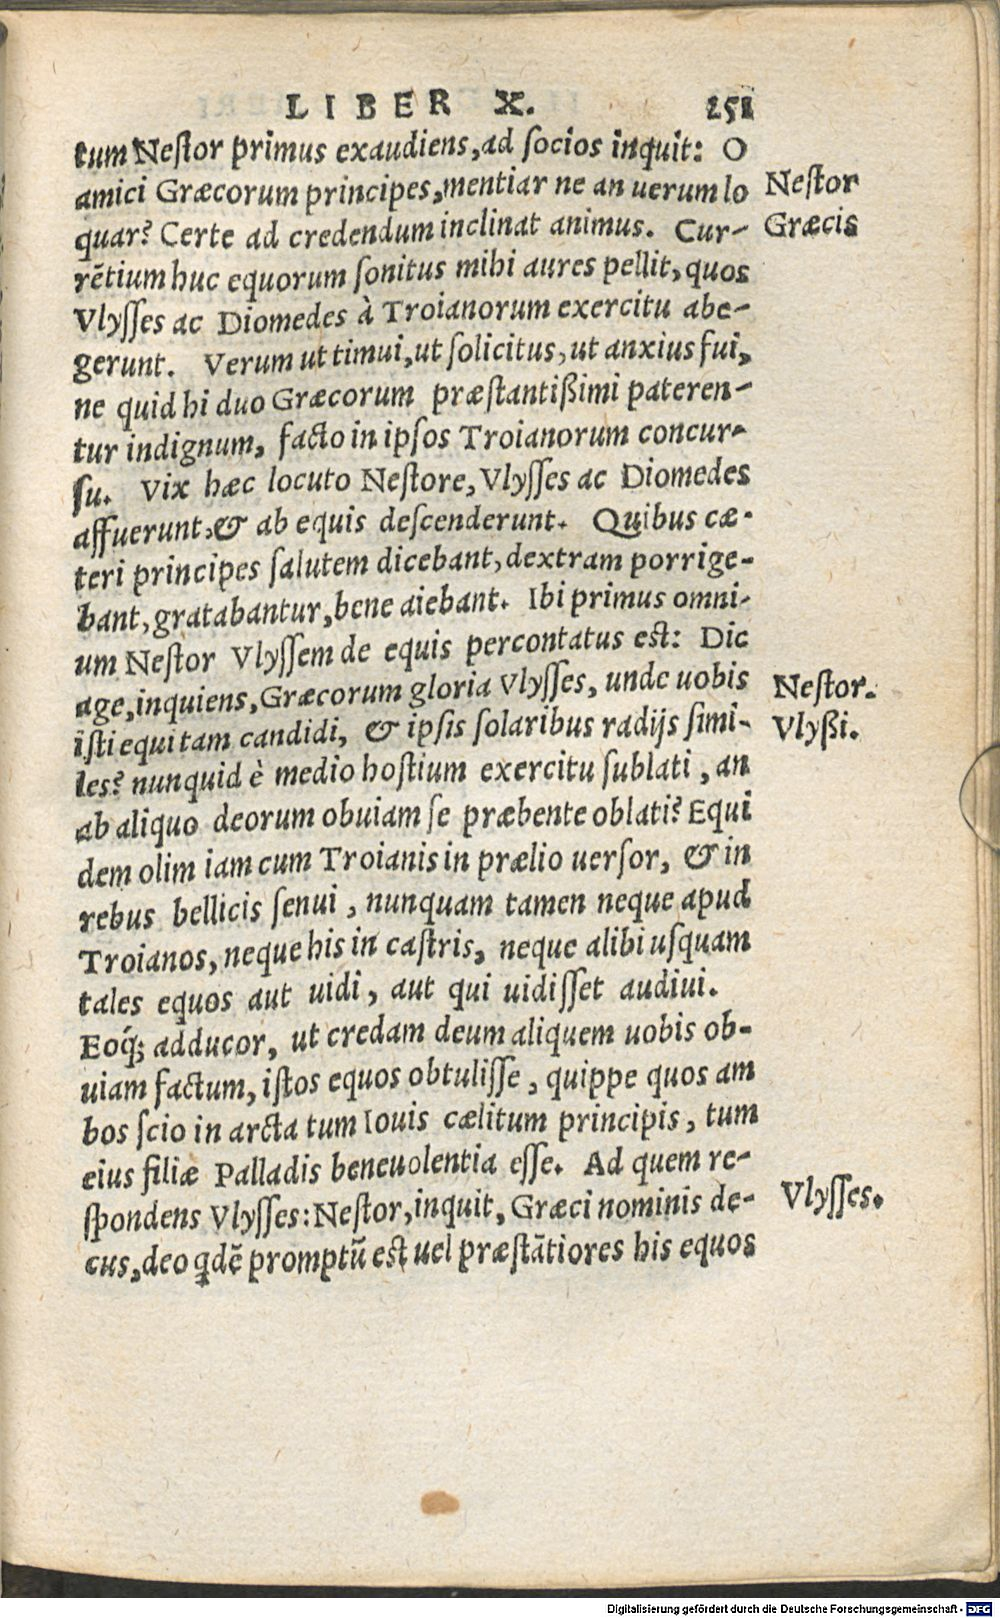 LIBER X. 251
tum Nestor primus exaudiens, ad socios inquit: O
amici Græcorum principes, mentiar ne an uerum lo
Nestor
quar? Certe ad credendum inclinat animus. Cur-
Græcis
rẽtium huc equorum sonitus mihi aures pellit, quos
Vlysses ac Diomedes à Troianorum exercitu abe-
gerunt. Verum ut timui, ut solicitus, ut anxius fui,
ne quid hi duo Græcorum præstantißimi pateren-
tur indignum, facto in ipsos Troianorum concur-
su. Vix hæc locuto Nestore, Vlysses ac Diomedes
affuerunt, & ab equis descenderunt. Quibus cæ-
teri principes salutem dicebant, dextram porrige-
bant, gratabantur, bene aiebant. Ibi primus omni-
um Nestor Vlyssem de equis percontatus est: Dic
age, inquiens, Græcorum gloria Vlysses, unde uobis
Nestor.
isti equi tam candidi, & ipsis solaribus radijs simi-
Vlyßi.
les? nunquid è medio hostium exercitu sublati, an
ab aliquo deorum obuiam se præbente oblati? Equi
dem olim iam cum Troianis in prælio uersor, & in
rebus bellicis senui, nunquam tamen neque apud
Troianos, neque his in castris, neque alibi usquam
tales equos aut uidi, aut qui uidisset audiui.
Eoq́; adducor, ut credam deum aliquem uobis ob-
uiam factum, istos equos obtulisse, quippe quos am
bos scio in arcta tum Iouis cælitum principis, tum
eius filiæ Palladis beneuolentia esse. Ad quem re-
spondens Vlysses: Nestor, inquit, Græci nominis de-
Vlysses.
cus, deo qdẽ promptũ est uel præstãtiores his equos
Digitalisierung gefördert durch die Deutsche Forschungsgemeinschaft - DFG